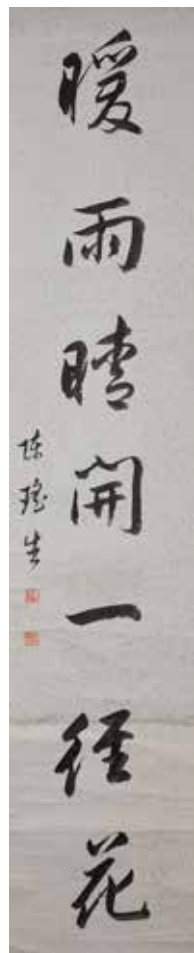 暖雨晴開一徑花
陈瑶生